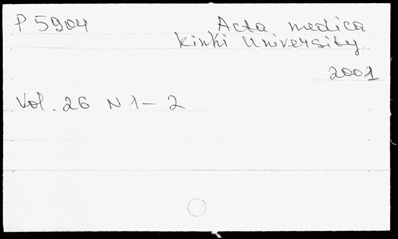 P 5904 Acta medica
Kinki University
2001
Vol. 26 N 1-2